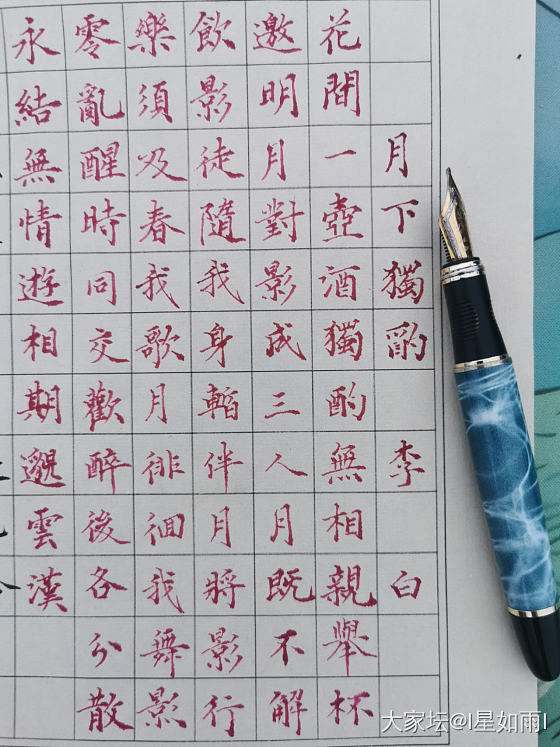 月下獨酌 李白
花間一壺酒獨酌無相親舉杯
邀明月對影成三人月既不解
飲影徒隨我身暫伴月將影行
樂須及春我歌月徘徊我舞影
零亂醒時同交歡醉後各分散
永結無情遊相期邈雲漢
大家坛@I星如雨I